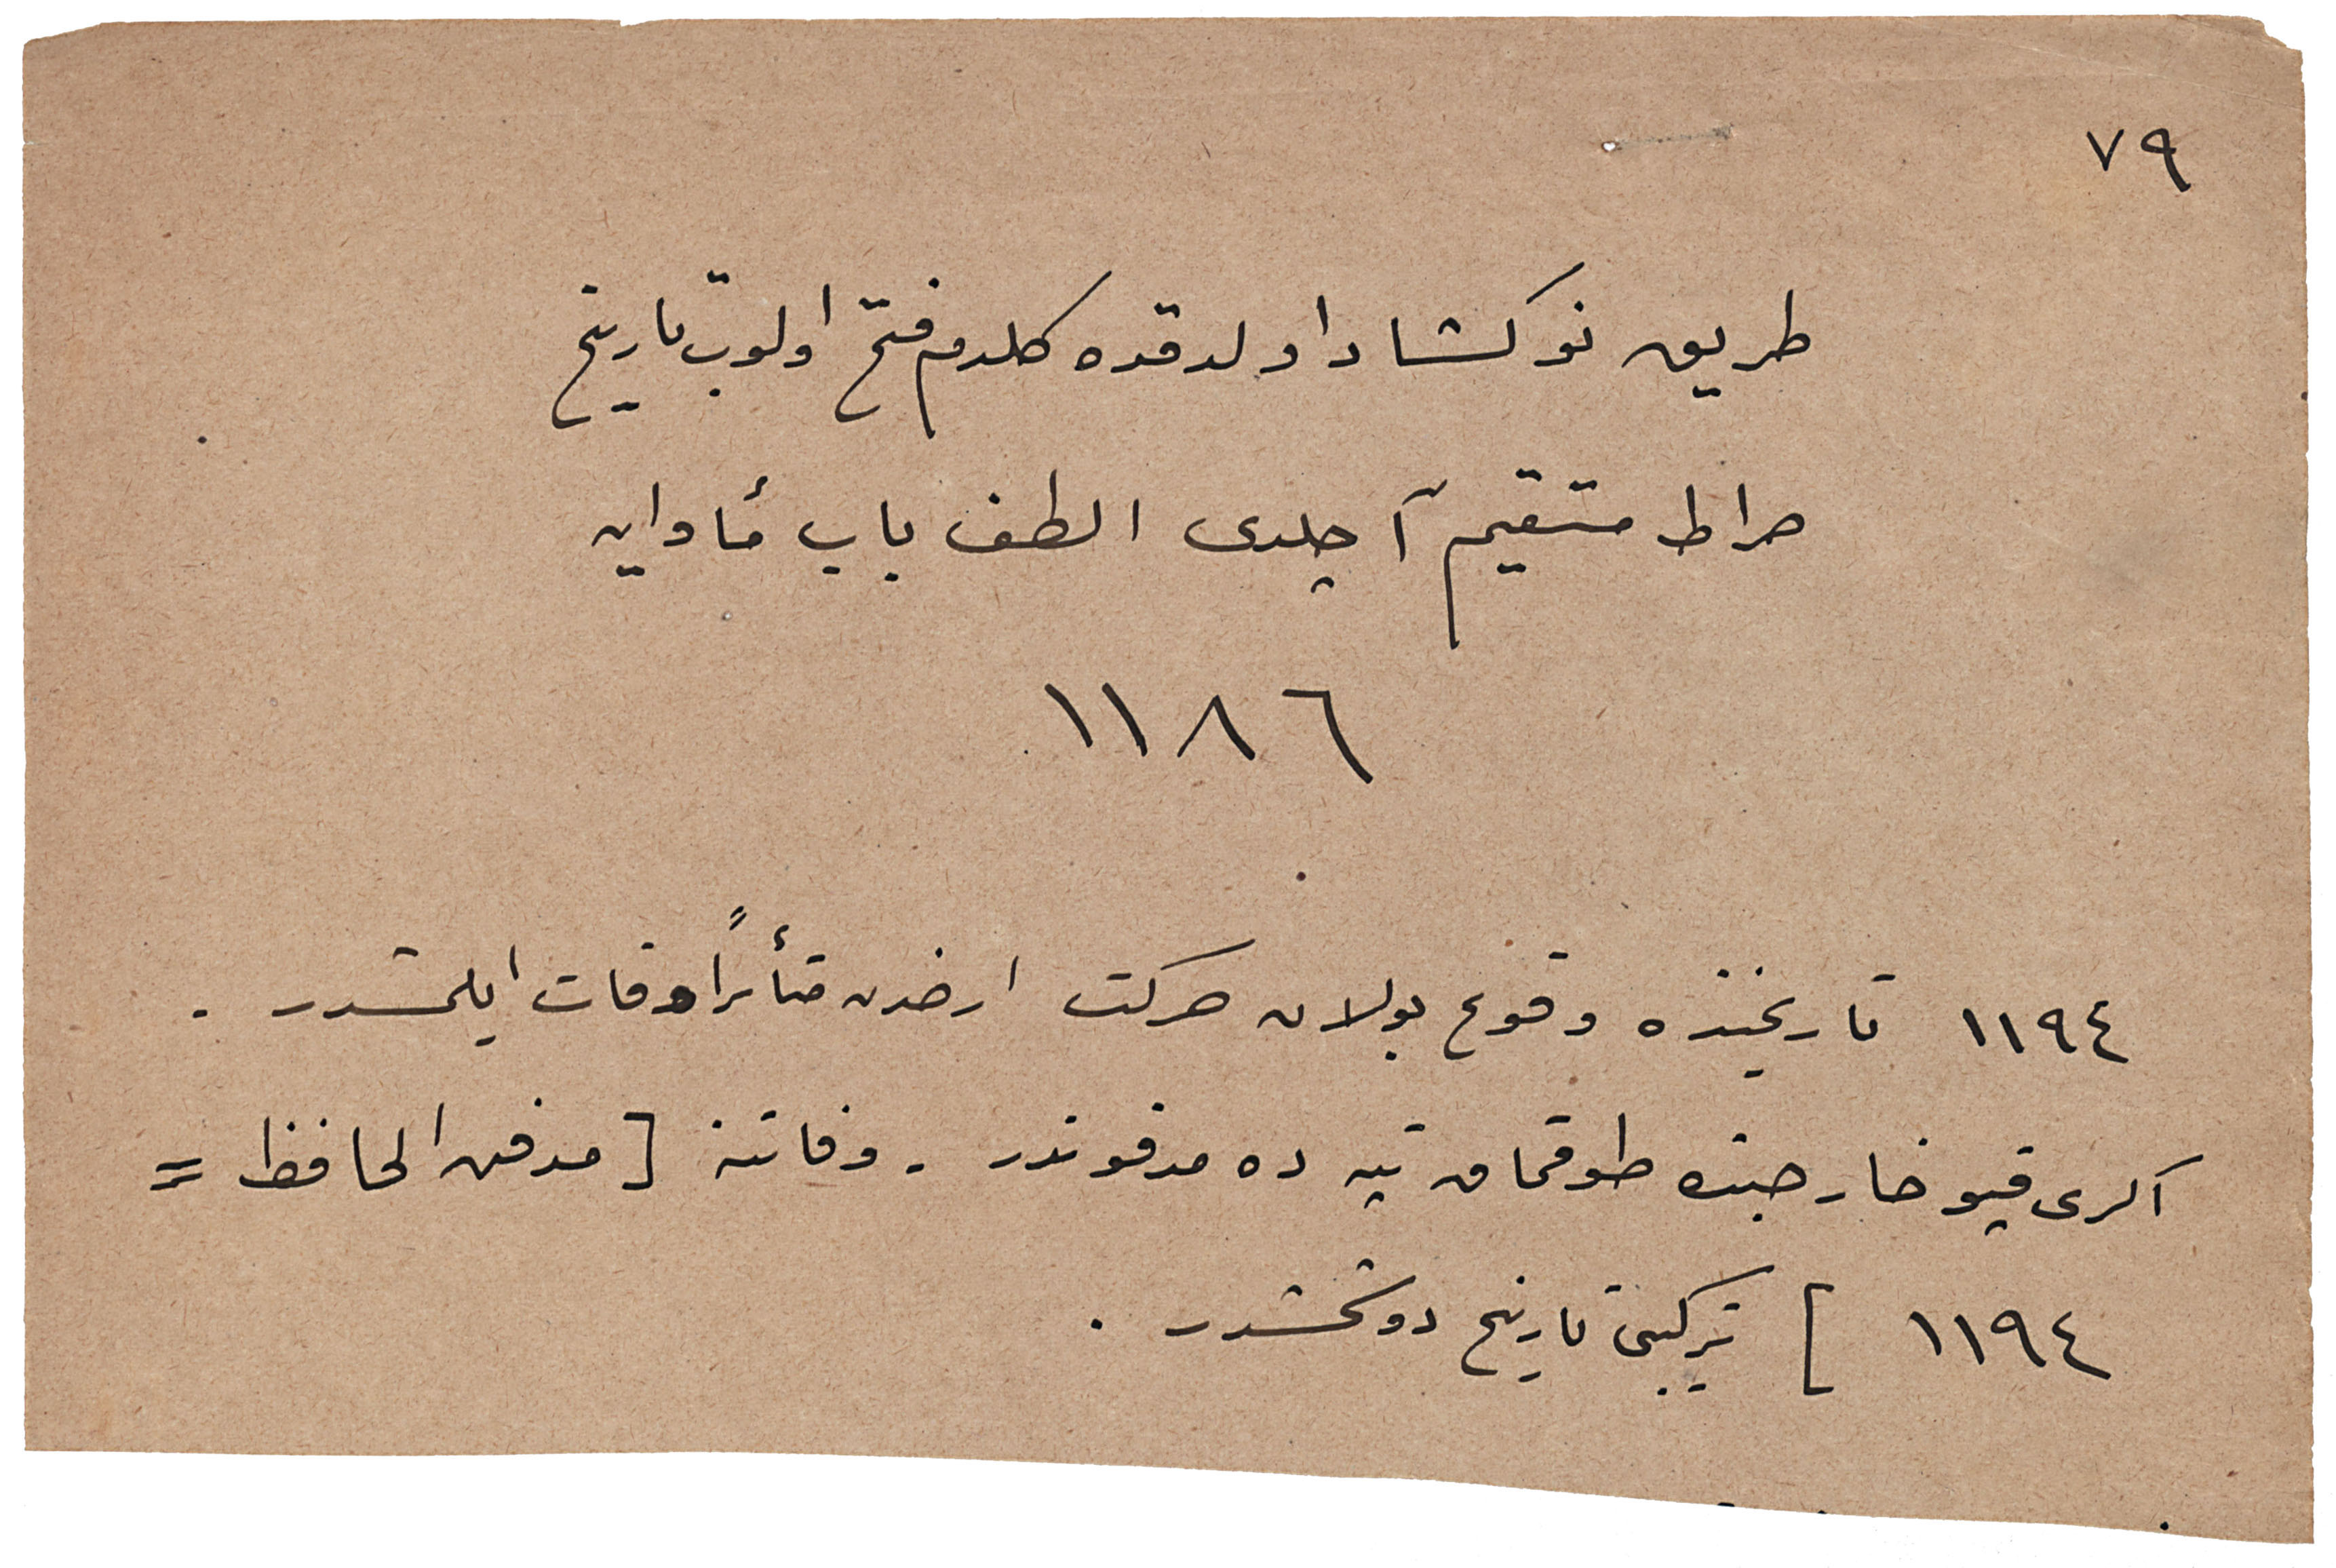 ٧٩
طريق نو كشاد اولدقده كلدم فتح اولوب تاريخ
صراط مستقيم آچلدى الطف باب مأوايه
١١٨٦
١١٩٤ تاريخنده وقوع بولان حركت ارضدن متأثراً وفات ايلمشدر .
اكرى قپو خارجنده طوقماق تپه ده مدفوندر . وفاتنه [ مدفن الحافظ =
١١٩٤ ] تركيبى تاريخ دوشمشدر .